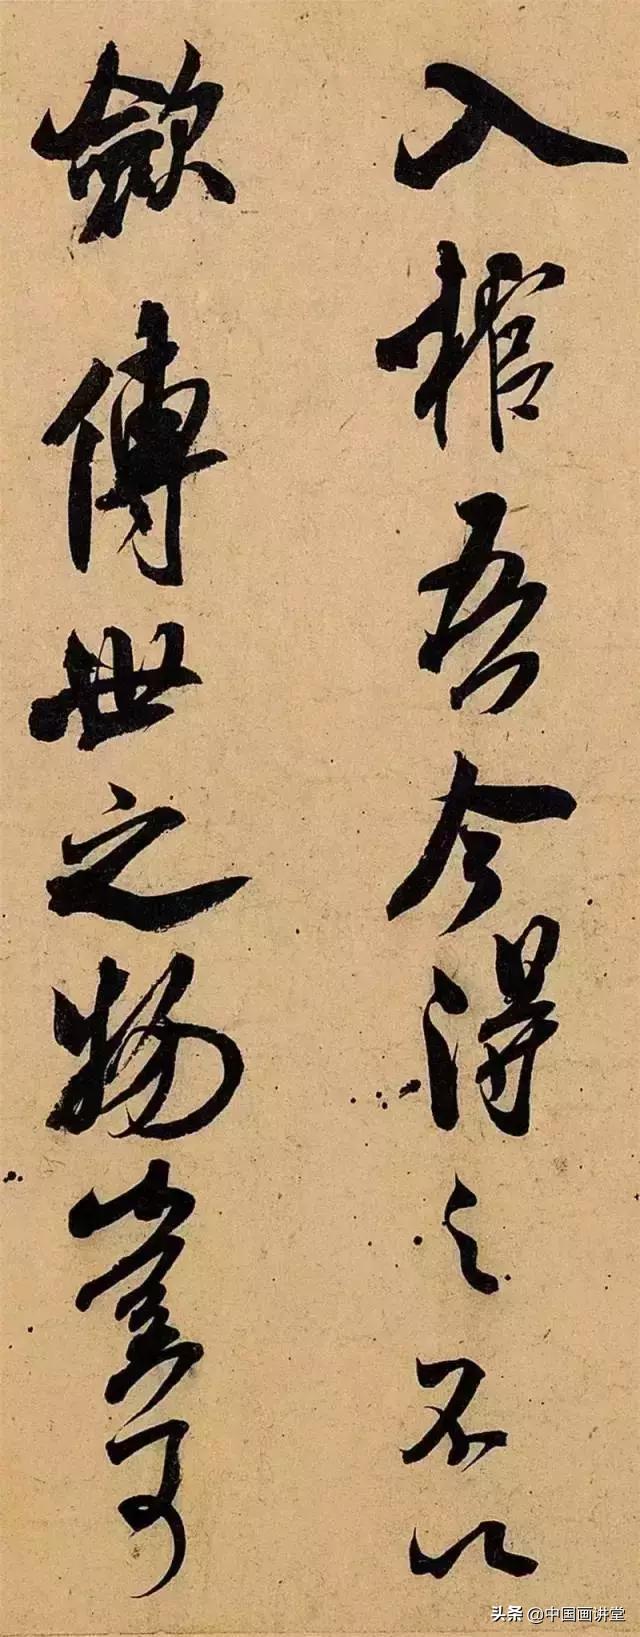 入棺吾今得之不以
斂傳世之物豈可
头条 @中国画讲堂